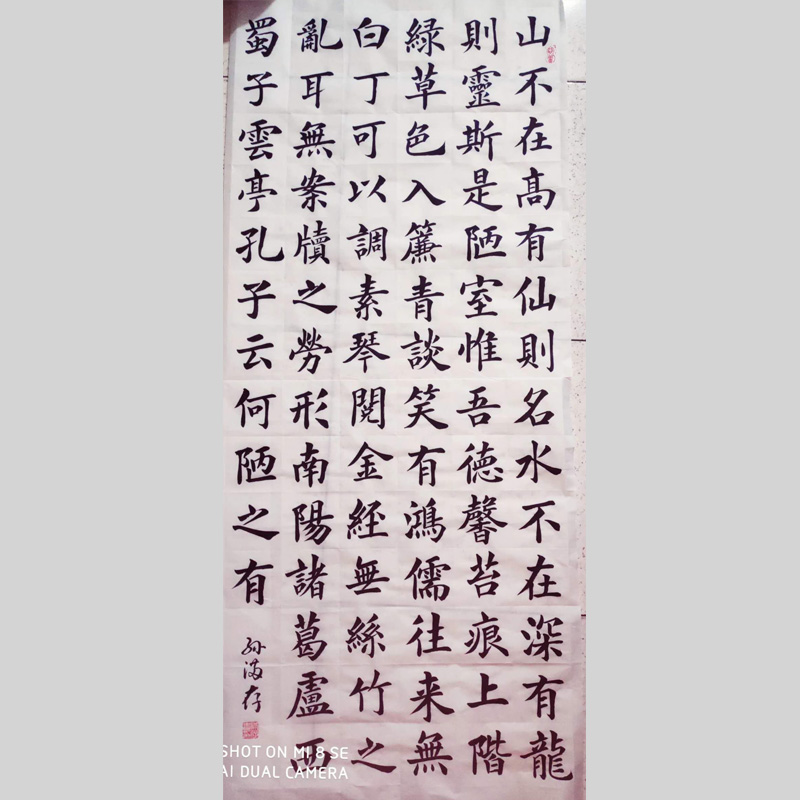 山不在髙有仙則名水不在深有龍
則靈斯是陋室惟吾德馨苔痕上階
綠草色入簾青談笑有鴻儒往来無
白丁可以調素琴閱金經無絲竹之
亂耳無案牘之勞形南陽諸葛廬西
蜀子雲亭孔子云何陋之有
SHOT ON MI 8 SE
AI DUAL CAMERA